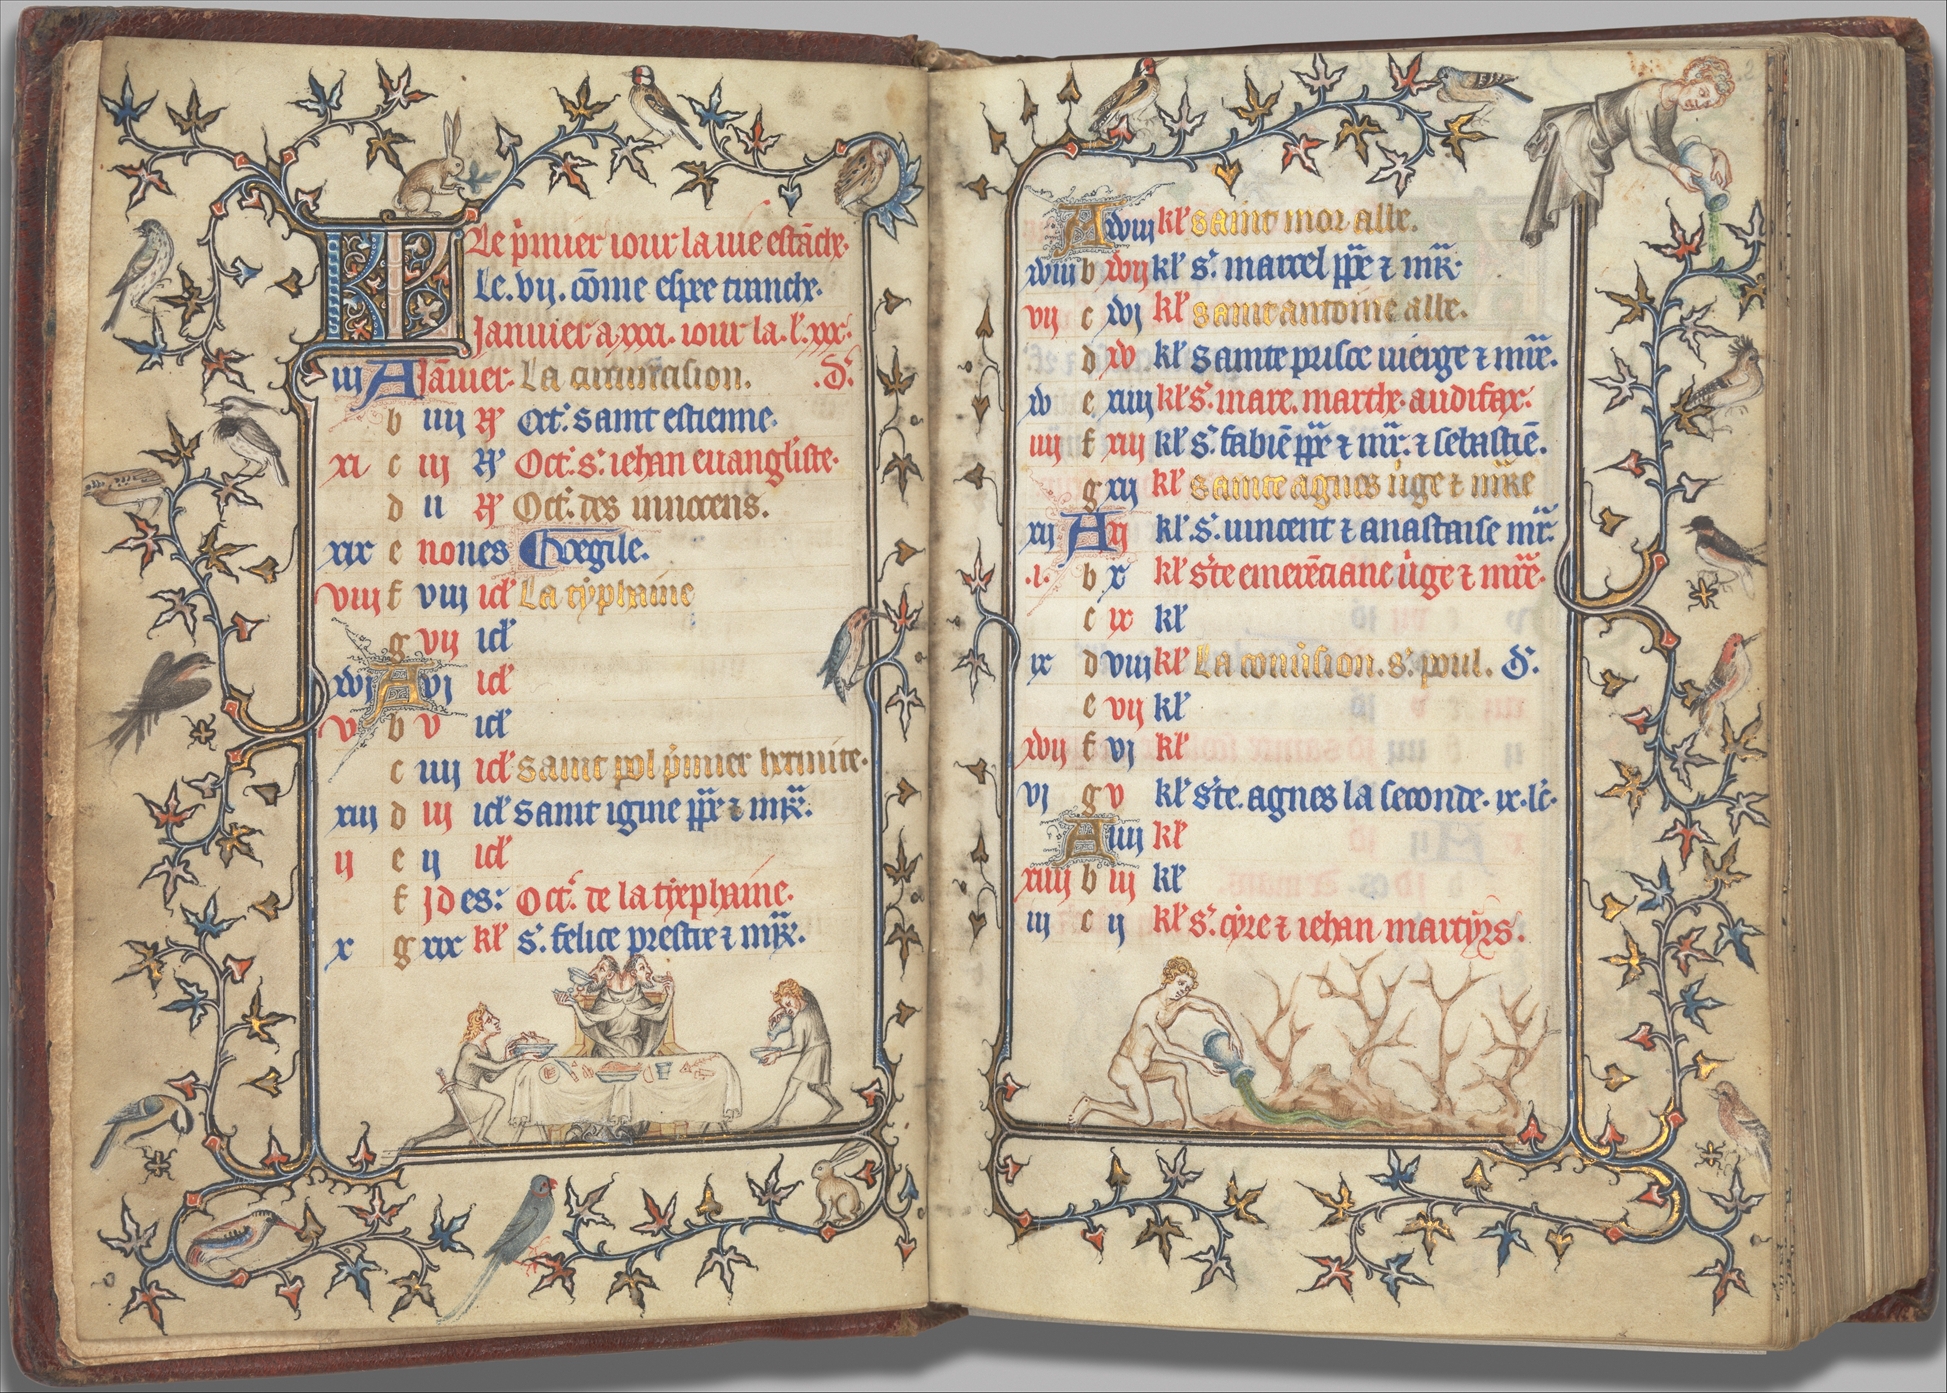 KL Le p̄mier iour la uie estāche.
Le .vij. cōme espee trenche.
Januier a .xxxi. iour la .l'. xxx.
iij A Jāuier. La circuncision. .d'.
b iiij N̄ Oct'. saint estienne.
xi c iij N̄ Oct'. s'. iehan euāngliste.
d ii N̄ Oct'. des innocens.
xix e nones
viij f viij id' La typhaine
g vij id'
xvi A vj id'
v b v id'
c iiij id' saint pol p̄mier hermite.
xiij d iij id' saint igine pp̄e ⁊ mr̄.
ij e ij id'
f jdes: Oct'. de la tyephaine.
x g xix kl' s'. felice prestre ⁊ mr̄.
A xviij kl' saint mor abbe.
xviij b xvij kl' s'. marcel pp̄e ⁊ mr̄.
vij c xvj kl' saint antoine abbe.
d xv kl' sainte prisce uierge ⁊ mr̄e.
xv e xiiij kl' s'. mare. marthe. audifax.
iiij f xiij kl' s'. fabiē pp̄e ⁊ mr̄. ⁊ sebastiē.
g xij kl' sainte agnes ūge ⁊ mr̄e
xij A xj kl'. s'. uincent ⁊ anastaise mr̄.
.i. b x kl' s'te emerēciane ūge ⁊ mr̄e.
c ix kl'
ix d viij kl' La conūsion. s'. poul. d'.
e vij kl'
xvij f vj kl'
vj g v kl' s'te. agnes la seconde. ix. lc'.
A iiij kl'
xiiij b iij kl'
iij c ij kl' s'. cyre ⁊ iehan martyrs.